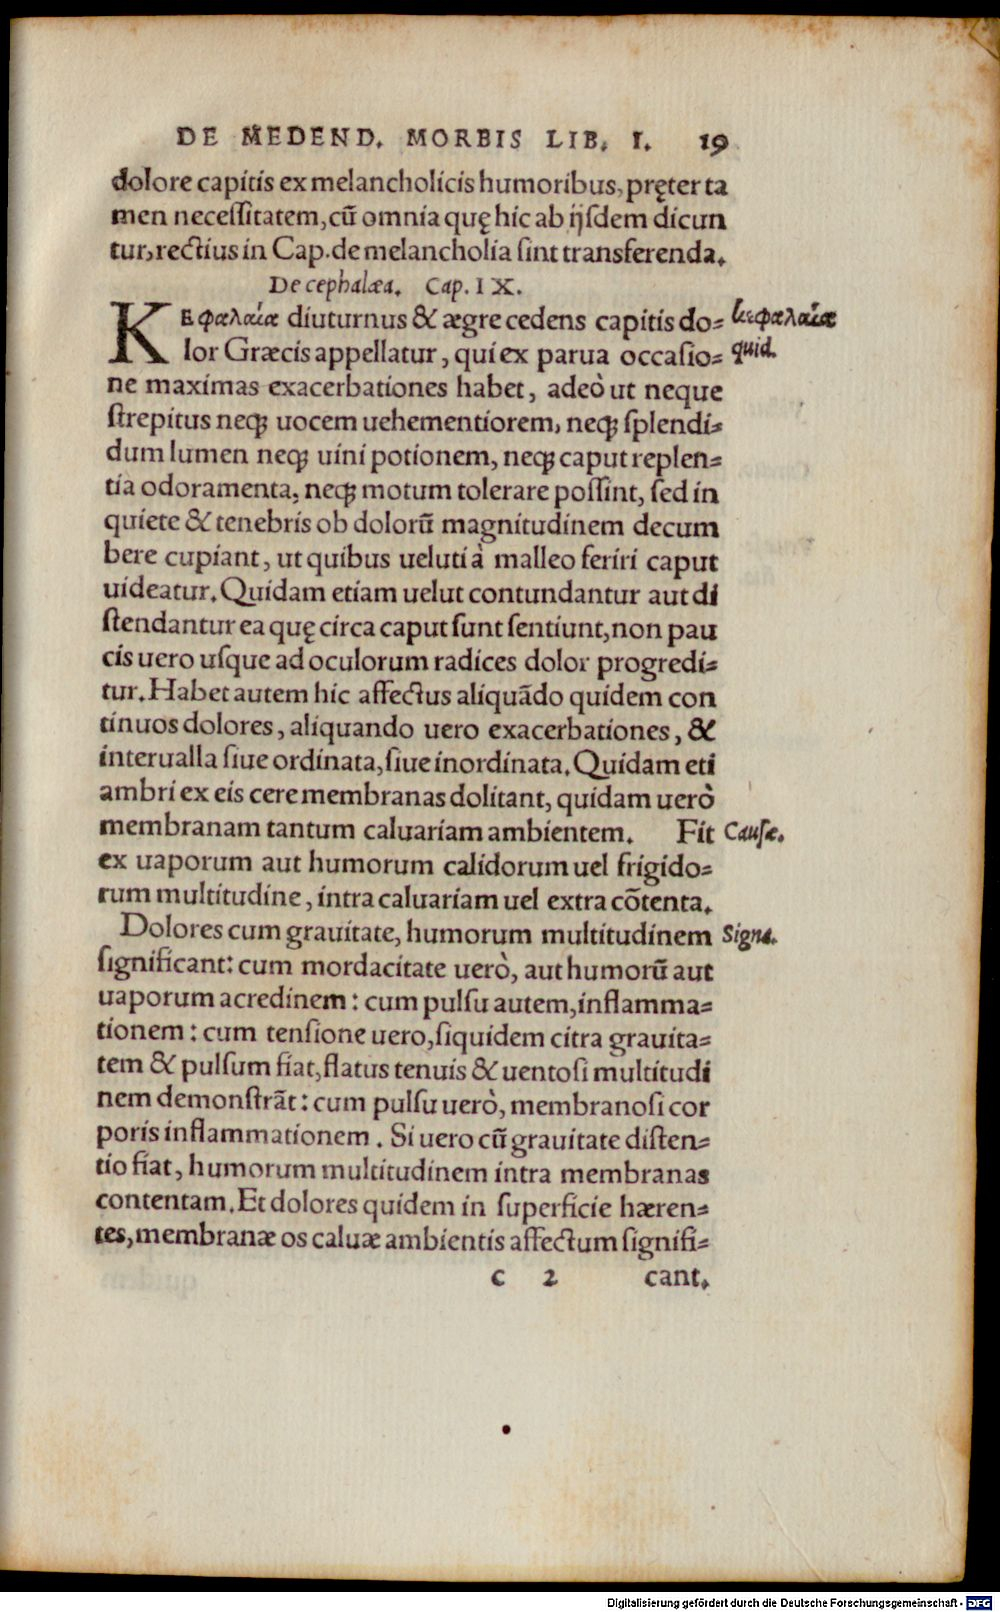 DE MEDEND. MORBIS LIB. I. 19
dolore capitis ex melancholicis humoribus, pręter ta
men necessitatem, cũ omnia quę hic ab ijsdem dicun
tur, rectius in Cap. de melancholia sint transferenda.
De cephalæa. Cap. IX.
ΚΕφαλαία diuturnus & ægre cedens capitis do=
κεφαλαία
lor Græcis appellatur, qui ex parua occasio=
quid.
ne maximas exacerbationes habet, adeò ut neque
strepitus neq; uocem uehementiorem, neq; splendi=
dum lumen neq; uini potionem, neq; caput replen=
tia odoramenta, neq; motum tolerare possint, sed in
quiete & tenebris ob dolorũ magnitudinem decum
bere cupiant, ut quibus ueluti à malleo feriri caput
uideatur. Quidam etiam uelut contundantur aut di
stendantur ea quę circa caput sunt sentiunt, non pau
cis uero usque ad oculorum radices dolor progredi=
tur. Habet autem hic affectus aliquãdo quidem con
tinuos dolores, aliquando uero exacerbationes, &
interualla siue ordinata, siue inordinata. Quidam eti
ambri ex eis cere membranas dolitant, quidam uerò
membranam tantum caluariam ambientem. Fit
Causæ.
ex uaporum aut humorum calidorum uel frigido=
rum multitudine, intra caluariam uel extra cõtenta.
Dolores cum grauitate, humorum multitudinem
Signa.
significant: cum mordacitate uerò, aut humorũ aut
uaporum acredinem: cum pulsu autem, inflamma=
tionem: cum tensione uero, siquidem citra grauita=
tem & pulsum fiat, flatus tenuis & uentosi multitudi
nem demonstrãt: cum pulsu uerò, membranosi cor
poris inflammationem. Si uero cũ grauitate disten=
tio fiat, humorum multitudinem intra membranas
contentam. Et dolores quidem in superficie hæren=
tes, membranæ os caluæ ambientis affectum signifi=
c 2 cant.
Digitalisierung gefördert durch die Deutsche Forschungsgemeinschaft - DFG